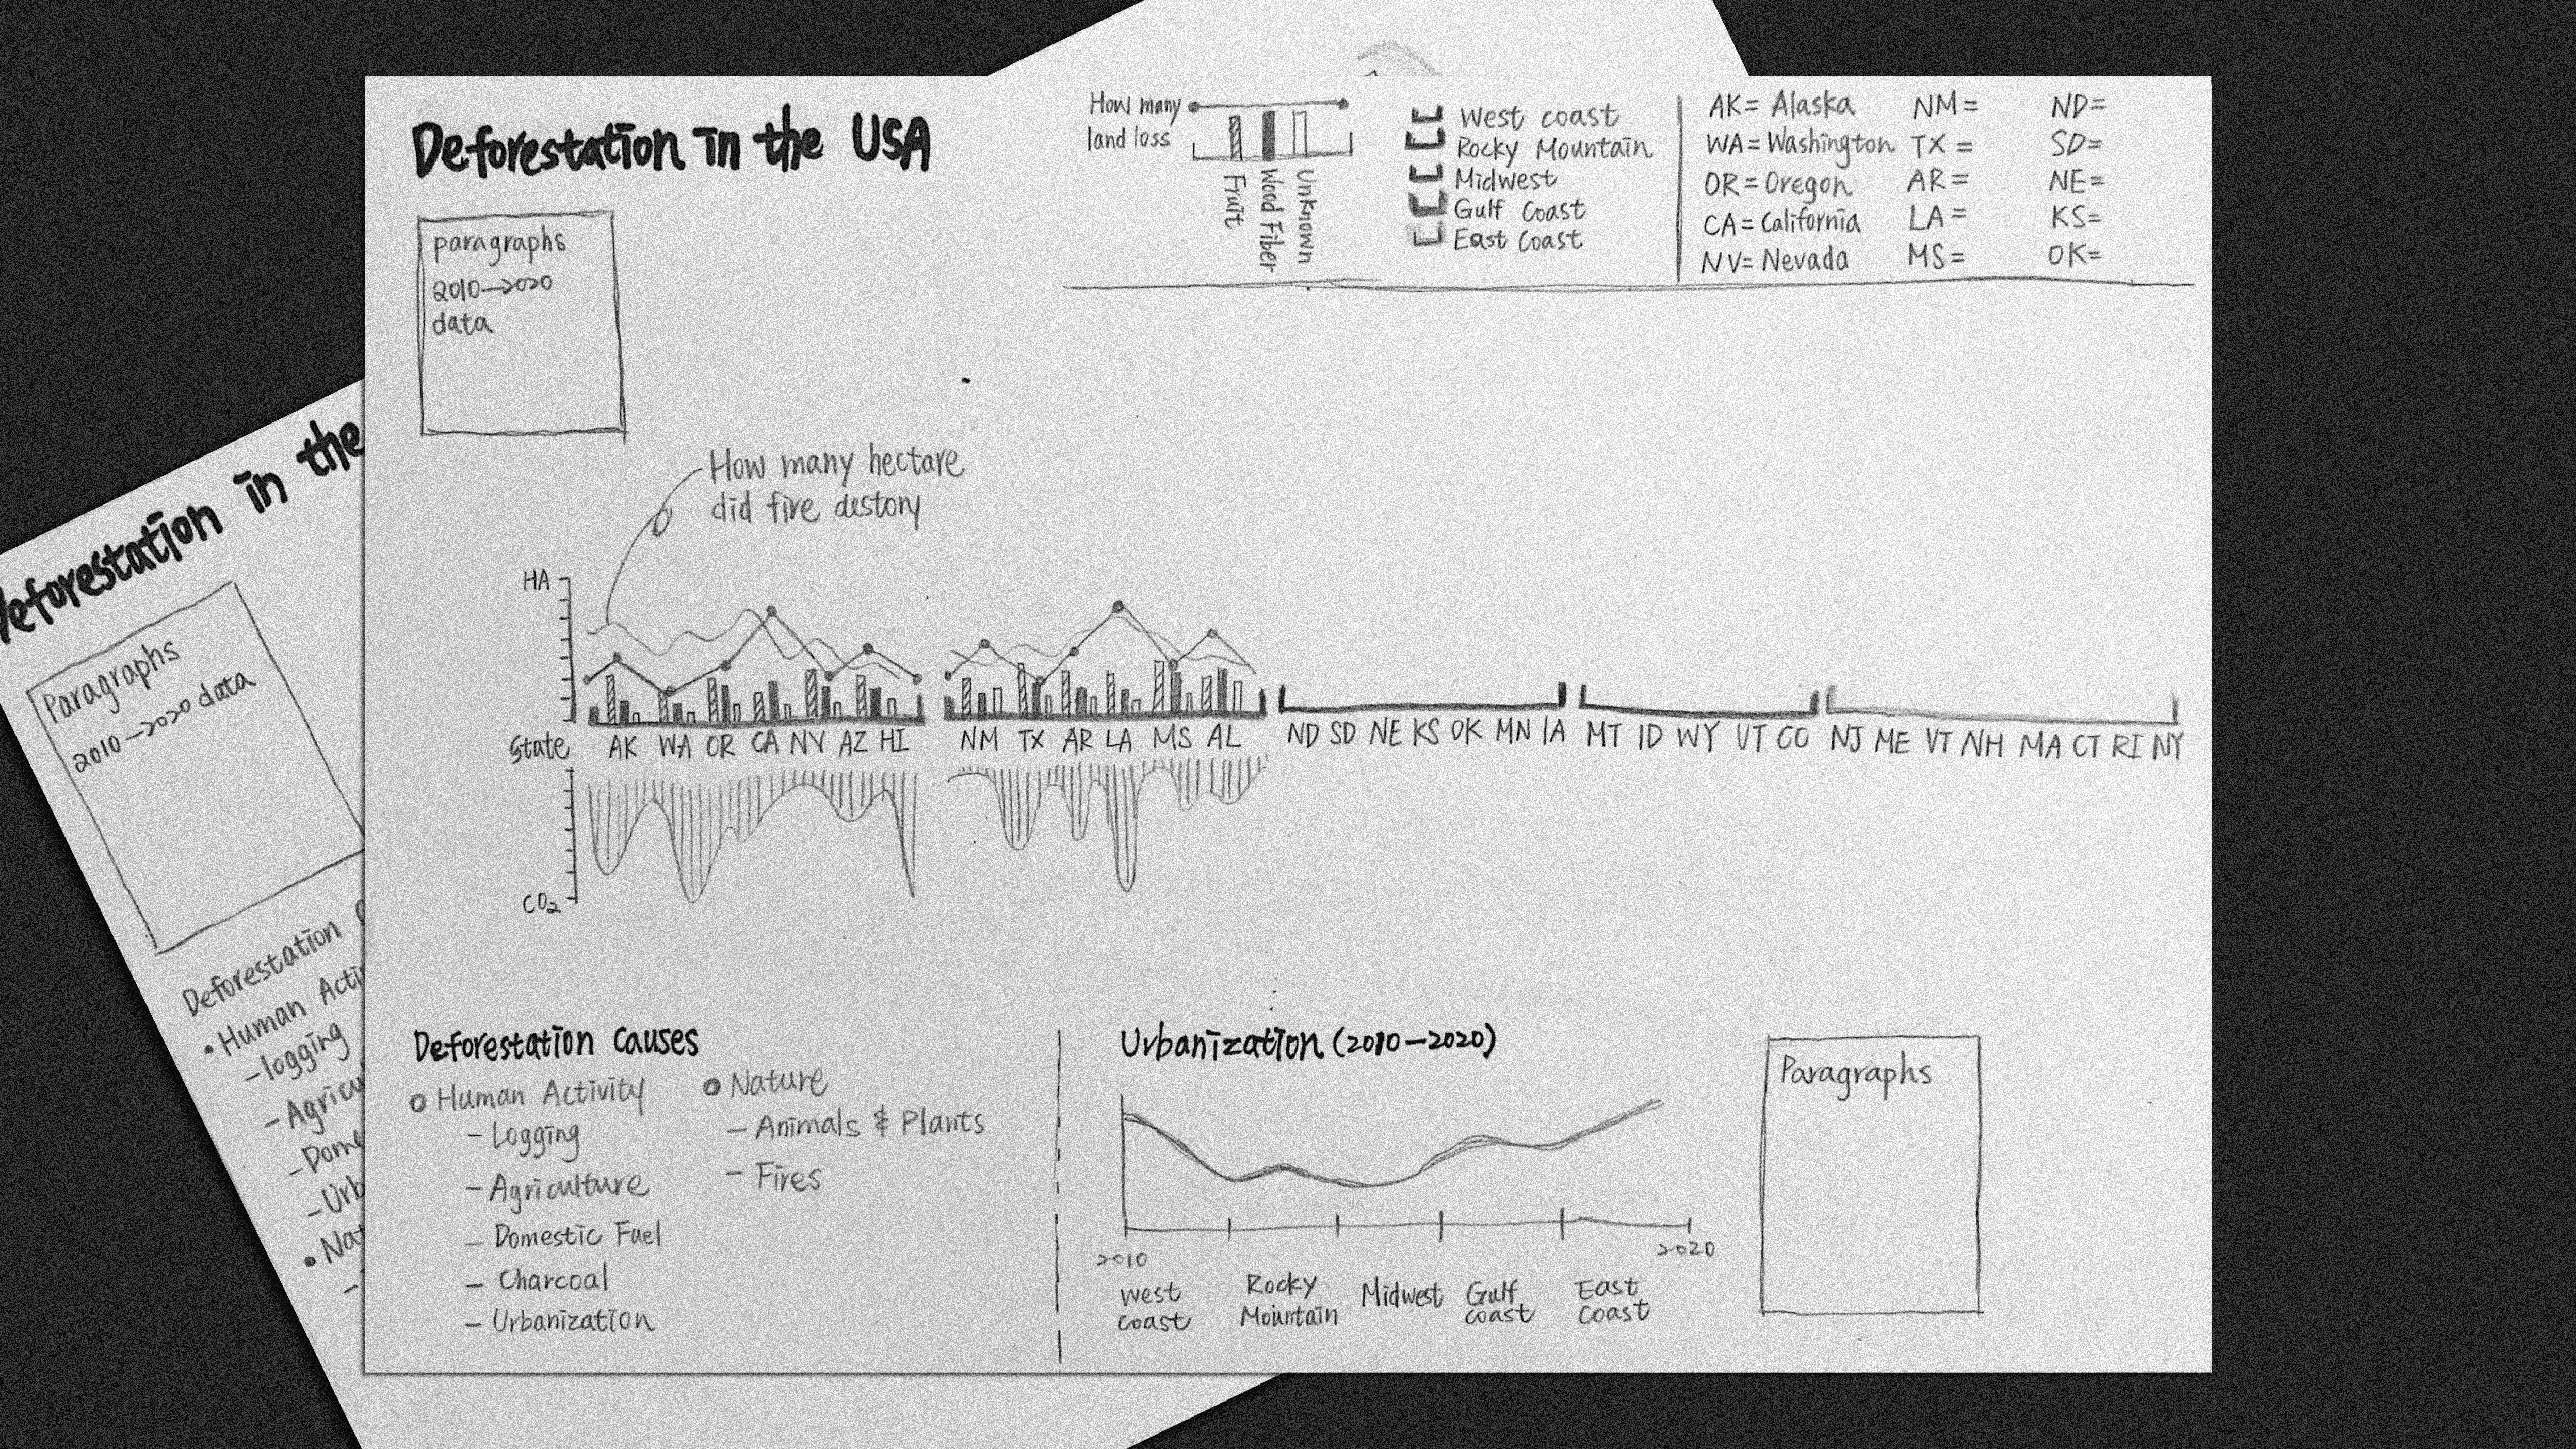 Deforestation in the USA
paragraphs
2010→2020
data
How many
land loss
Fruit
Wood Fiber
Unknown
West coast
Rocky Mountain
Midwest
Gulf Coast
East Coast
AK= Alaska
WA= Washington
OR= Oregon
CA= California
NV= Nevada
NM=
TX =
AR=
LA=
MS=
ND=
SD=
NE=
KS=
OK=
How many hectare
did fire destory
HA
State AK WA OR CA NV AZ HI NM TX AR LA MS AL ND SD NE KS OK MN IA MT ID WY UT CO NJ ME VT NH MA CT RI NY
CO2
Deforestation Causes
Human Activity
- Logging
- Agriculture
- Domestic Fuel
- Charcoal
- Urbanization
Nature
- Animals & Plants
- Fires
Urbanization (2010-2020)
2010
2020
West
coast
Rocky
Mountain
Midwest
Gulf
coast
East
Coast
Paragraphs
Deforestation in the
Paragraphs
2010→2020 data
Deforestation
• Human Acti
- logging
- Agricu
- Dome
- Urb
• Nat